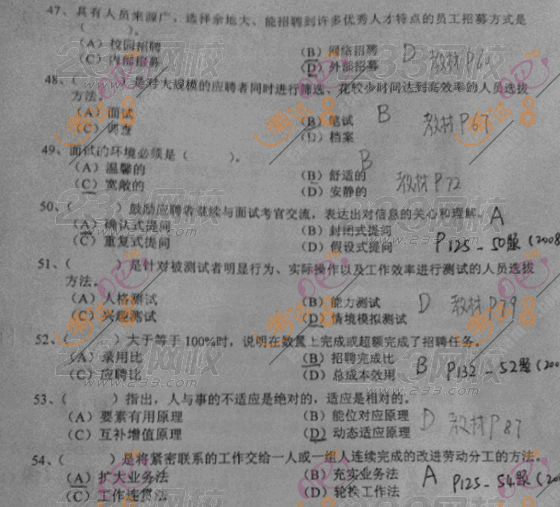 47、具有人员来源广、选择余地大、能招聘到许多优秀人才特点的员工招募方式是
(    )。
(A) 校园招聘 (B) 网络招聘 D 教材P60
(C) 内部招募 (D) 外部招募
48、(    ) 是对大规模的应聘者同时进行筛选、花较少时间达到高效率的人员选拔
方法。
(A) 面试 (B) 笔试 B 教材P67
(C) 调查 (D) 档案
49、面试的环境必须是 (    )。 B
(A) 温馨的 (B) 舒适的 教材P72
(C) 宽敞的 (D) 安静的
50、(    ) 鼓励应聘者继续与面试考官交流，表达出对信息的关心和理解。 A
(A) 确认式提问 (B) 封闭式提问
(C) 重复式提问 (D) 假设式提问 P125-50题 (2008
51、(    ) 是针对被测试者明显行为、实际操作以及工作效率进行测试的人员选拔
方法。
(A) 人格测试 (B) 能力测试 D 教材P79
(C) 兴趣测试 (D) 情境模拟测试
52、(    ) 大于等于100%时，说明在数量上完成或超额完成了招聘任务。
(A) 录用比 (B) 招聘完成比 B P132-52题 (200
(C) 应聘比 (D) 总成本效用
53、(    ) 指出，人与事的不适应是绝对的，适应是相对的。
(A) 要素有用原理 (B) 能位对应原理 D 教材P87
(C) 互补增值原理 (D) 动态适应原理
54、(    ) 是将紧密联系的工作交给一人或一组人连续完成的改进劳动分工的方法。
(A) 扩大业务法 (B) 充实业务法 A P125-54题 (200
(C) 工作连贯法 (D) 轮换工作法